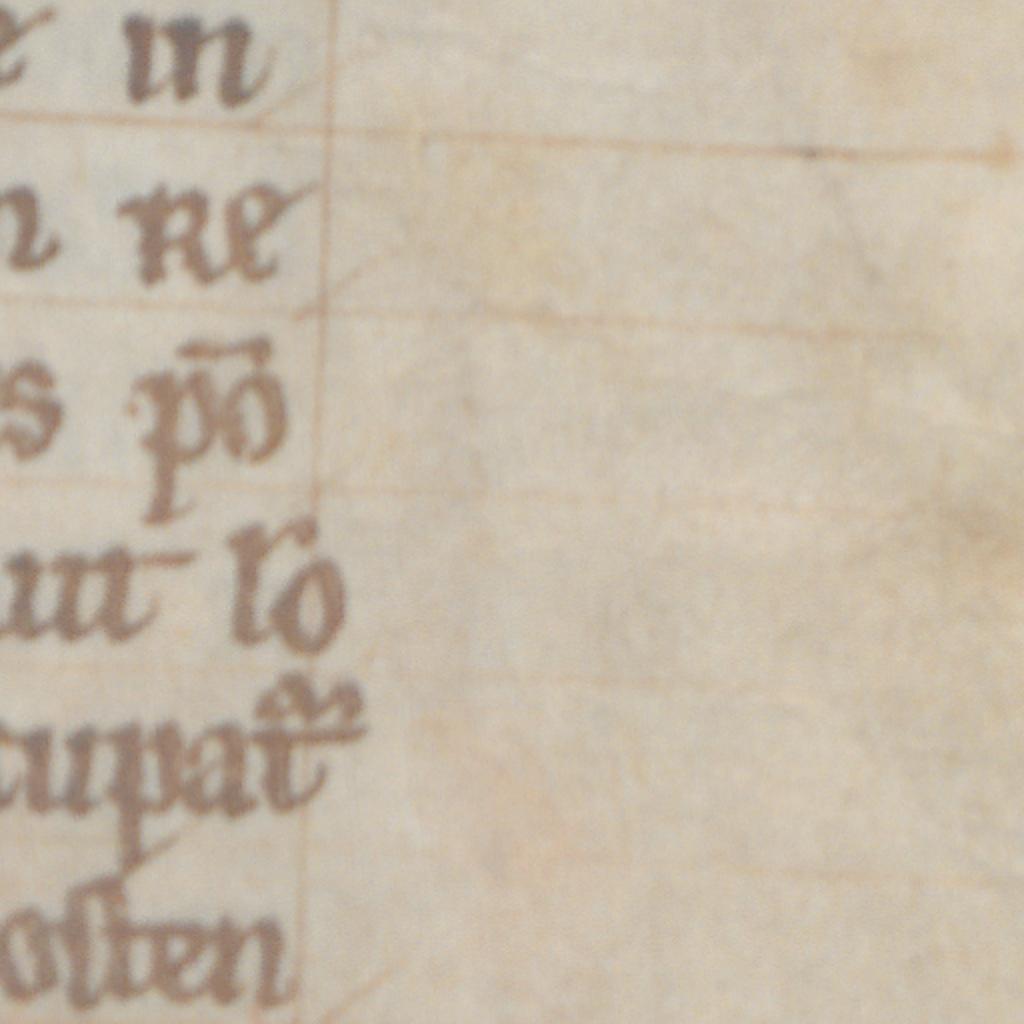 e in
n re
s pō
iut lo
cupat᷑
osten